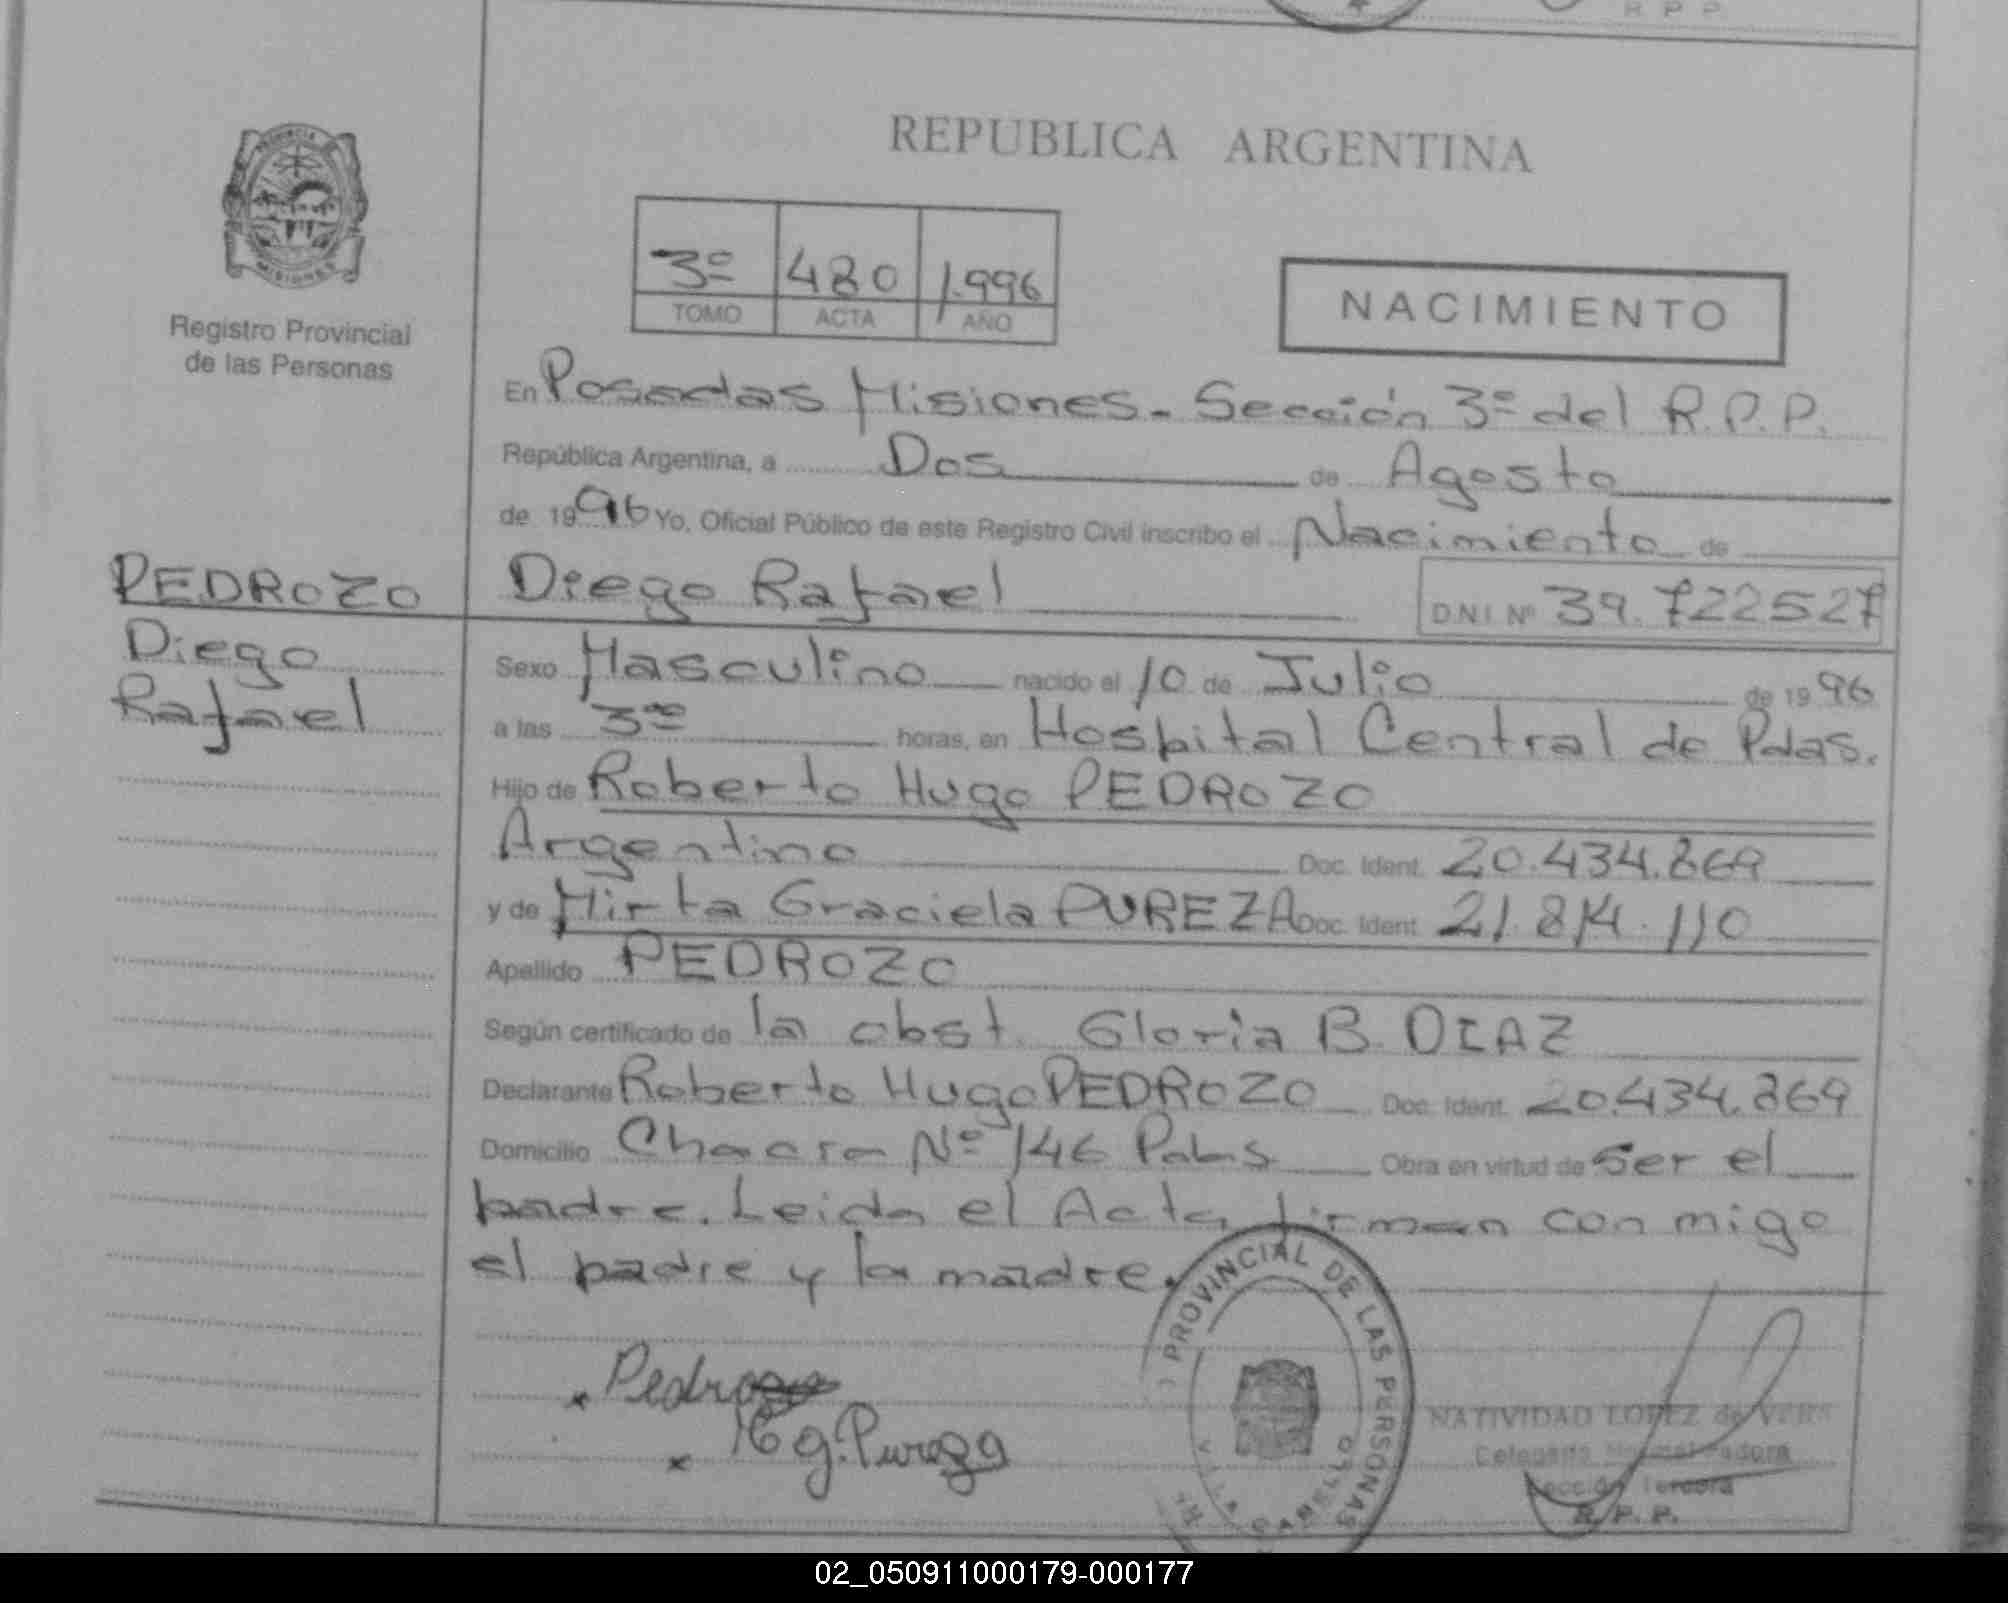 R P P
PROVINCIA
MISIONES
Registro Provincial
de las Personas
REPUBLICA ARGENTINA
3º 480 1.996
TOMO ACTA AÑO
NACIMIENTO
En Posadas Misiones - Sección 3º del R.P.P.
República Argentina, a Dos de Agosto
de 1996 Yo, Oficial Público de este Registro Civil inscribo el Nacimiento de
PEDROZO Diego Rafael D.N.I. Nº 39.722527
Diego
Rafael
Sexo Masculino nacido el 10 de Julio de 1996
a las 3ºº horas, en Hospital Central de Pdas.
Hijo de Roberto Hugo PEDROZO
Argentino Doc. Ident. 20.434.869
y de Mirta Graciela PUREZA Doc. Ident. 21.814.110
Apellido PEDROZO
Según certificado de la obst. Gloria B. DIAZ
Declarante Roberto Hugo PEDROZO Doc. Ident. 20.434.869
Domicilio Chacra Nº 146 Obra en virtud de ser el
padre. Leida el Acta firman con migo
el padre y la madre.
PROVINCIAL DE LAS PERSONAS
VILLA CABELLO
Pedrozo
g. Pureza
NATIVIDAD LOPEZ de VERA
Sección Tercera
R. P. P.
02_050911000179-000177